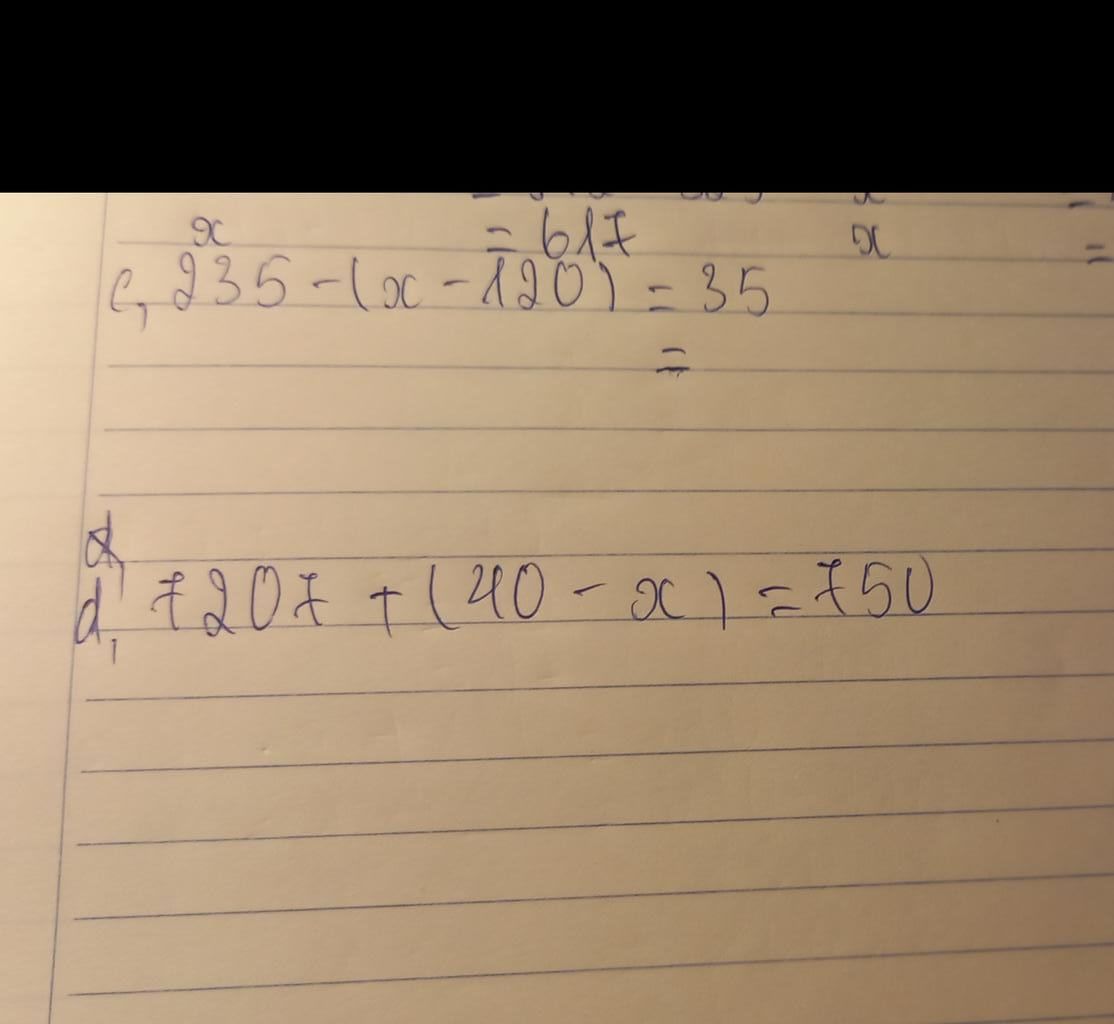 x = 617 x =
c, 235 - (x - 120) = 35
=
d, 7207 + (40 - x) = 750